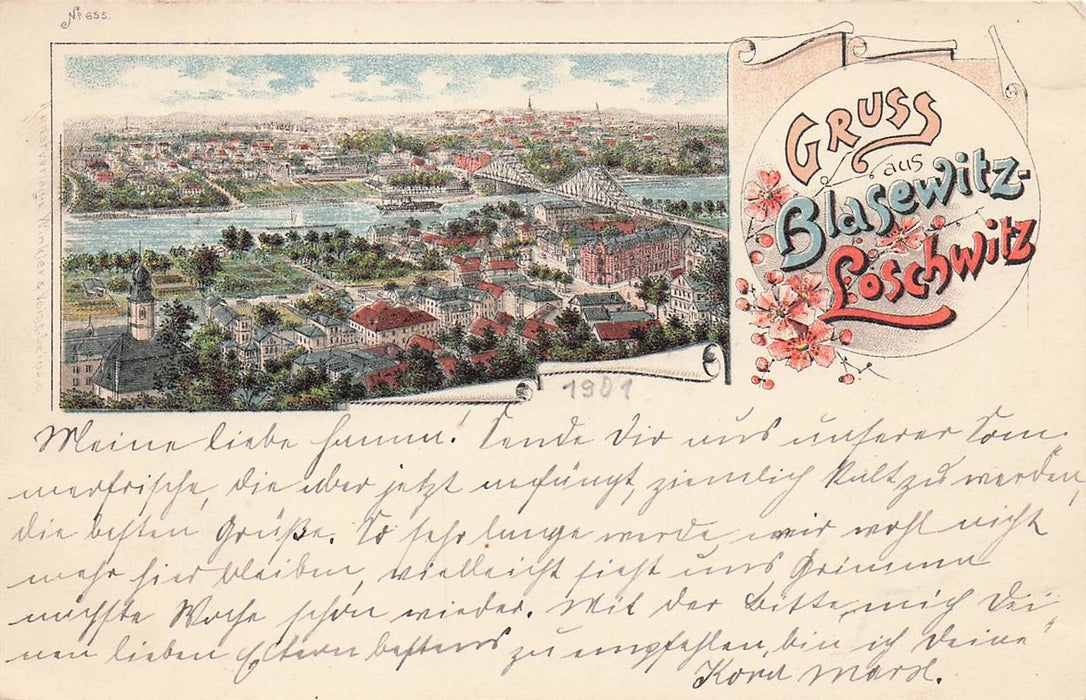 No 655.
GRUSS
aus
Blasewitz-
Loschwitz
1901
Meine liebe Hanna! Sende Dir aus unserer Som-
merfrische, die aber jetzt anfängt, ziemlich kalt zu werden,
die besten Grüße. So sehr lange werde wir wohl nicht
mehr hier bleiben, vielleicht sieht uns Grimma
nächste Woche schon wieder. Mit der Bitte, mich Dei-
nen lieben Eltern bestens zu empfehlen, bin ich Deine